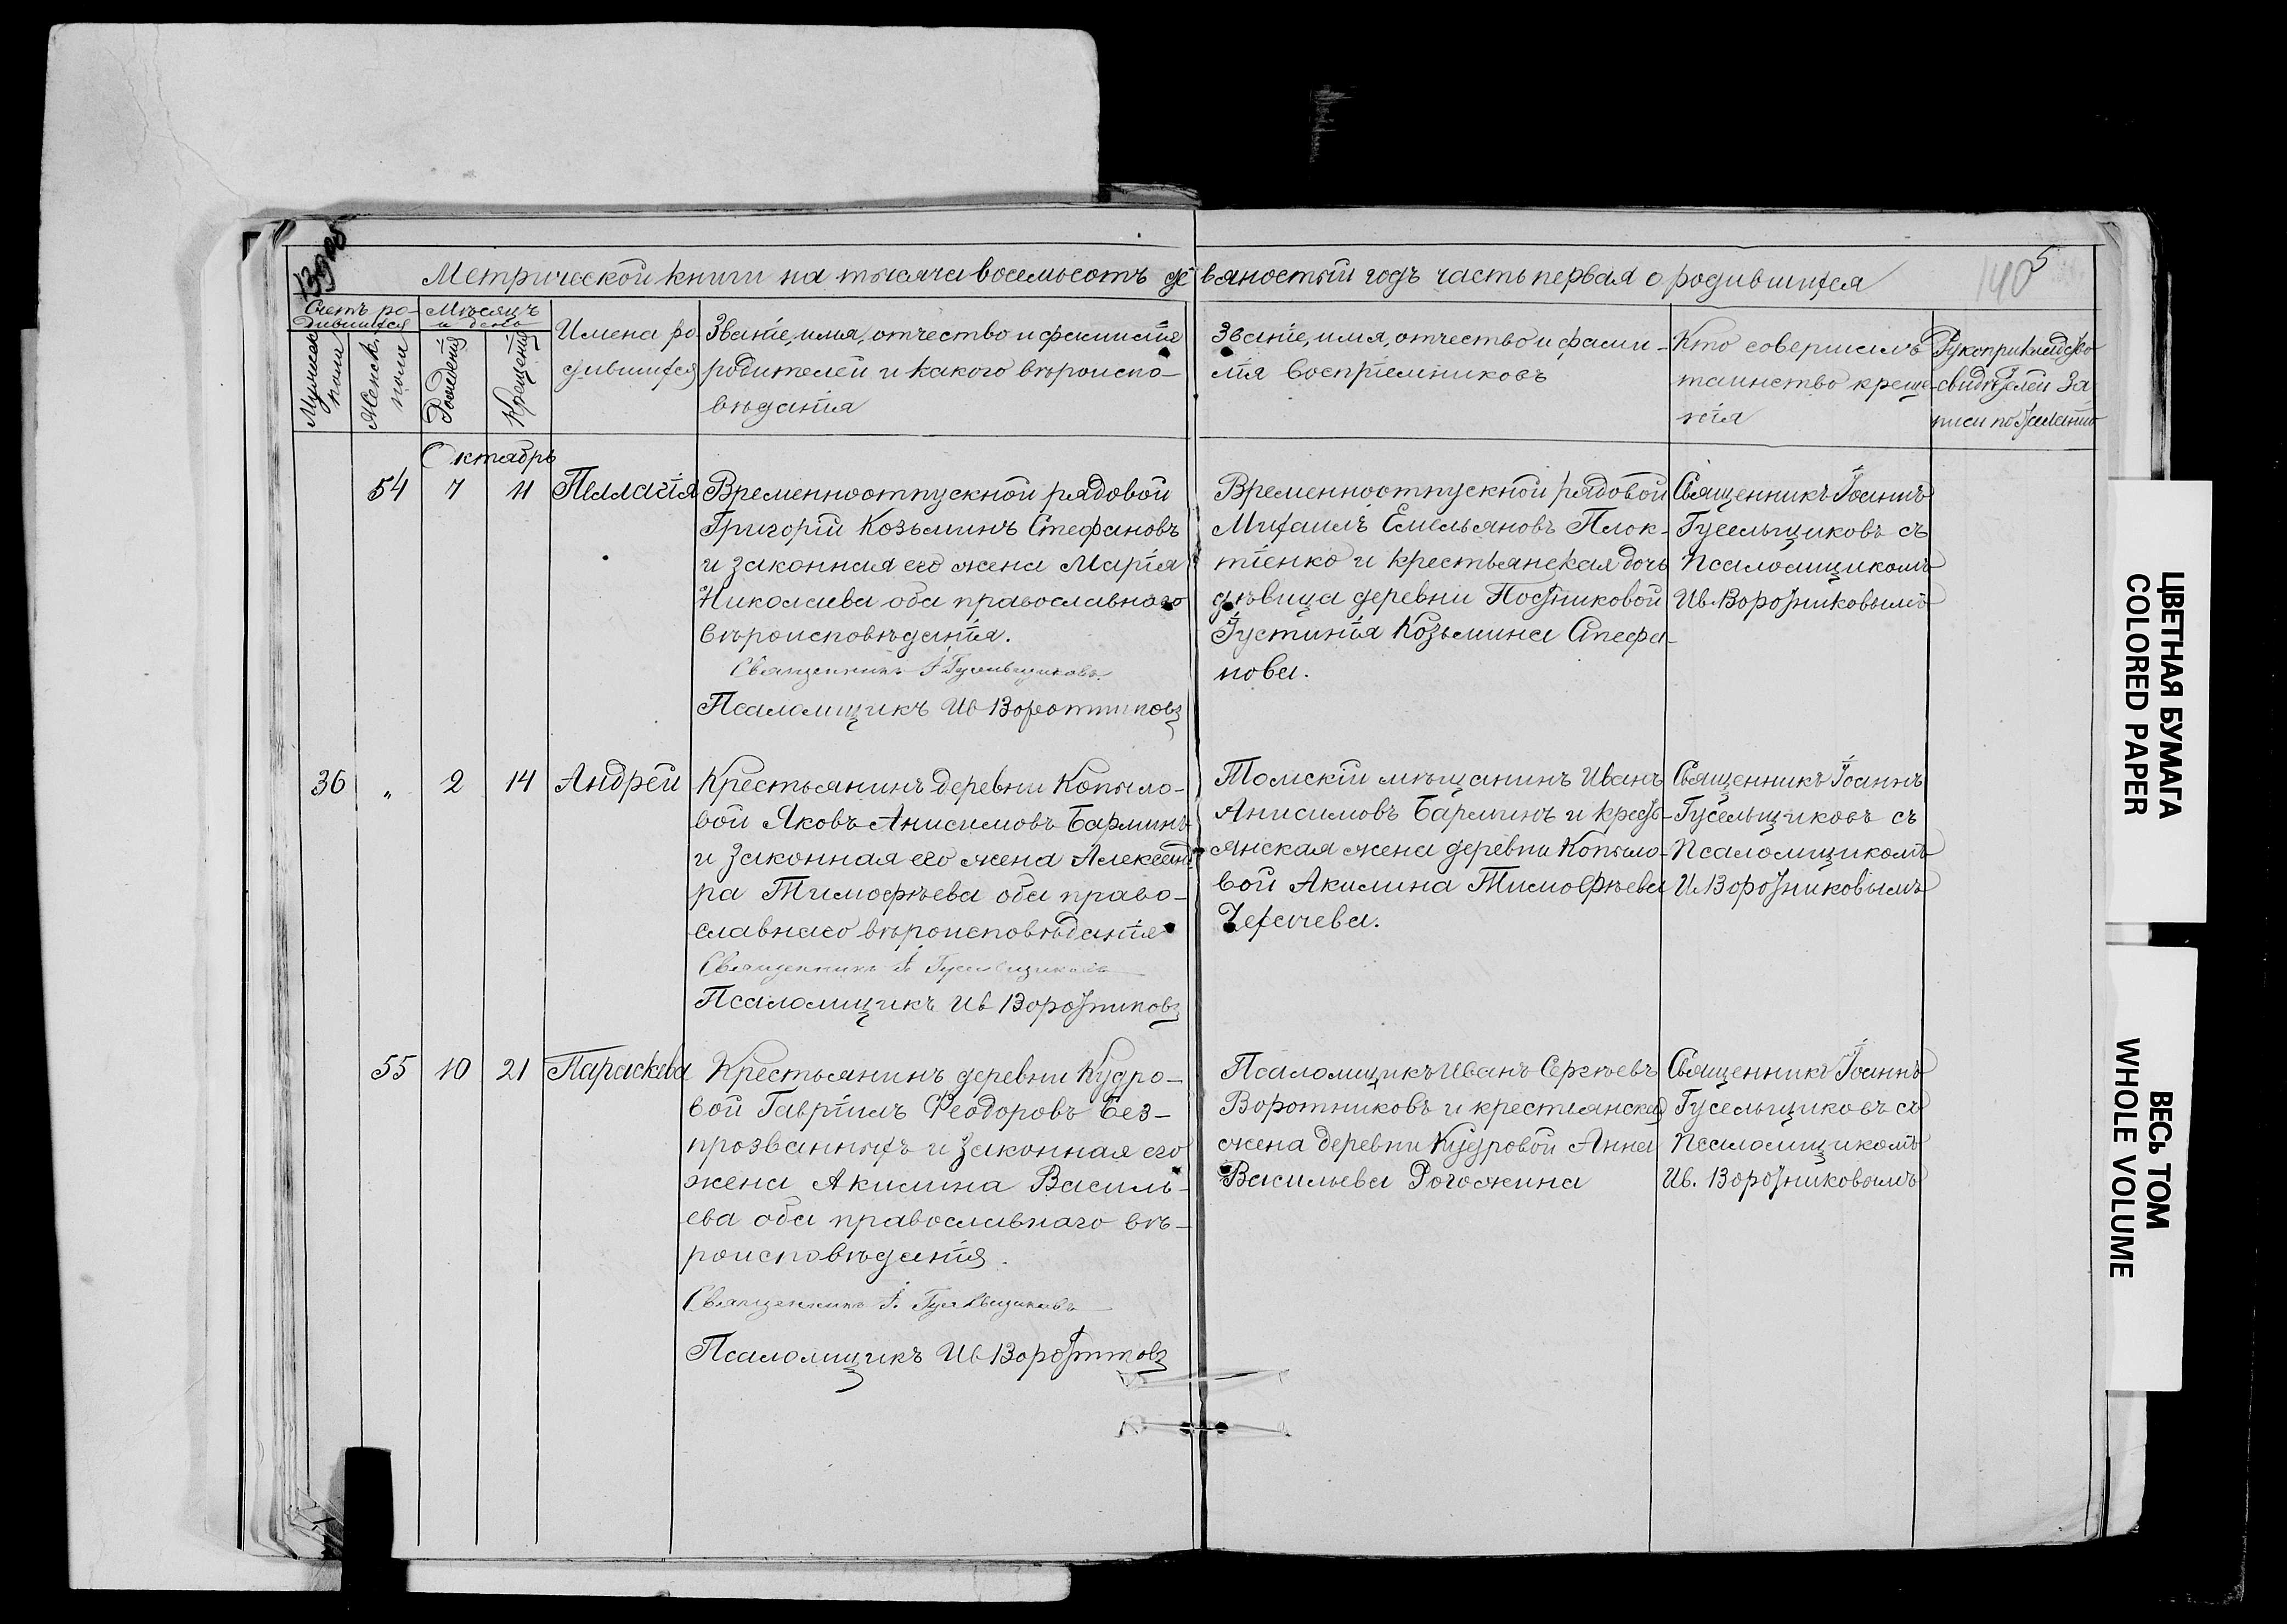 Метрической книги на тысяча восемьсотъ девяностый годъ часть первая о родившихся
140
5
Счетъ ро-
дившихся
Мѣсяцъ
и день
Мужеск.
пола
Женск.
пола
Рожденія
Крещенія
Имена ро-
дившихся
Званіе, имя, отчество и фамилія
родителей и какого вѣроиспо-
вѣданія
Званіе, имя, отчество и фами-
лія воспріемниковъ
Кто совершилъ
таинство креще-
нія
Рукоприкладство
свидѣтелей за-
писи по желанію
Октябрь
54 7 11 Пеллагія
Временноотпускной рядовой
Григорій Козьминъ Стефановъ
и законная его жена Марія
Николаева оба православнаго
вѣроисповѣданія.
Священникъ І Гусельщиковъ
Псаломщикъ Ив Воротниковъ
Временноотпускной рядовой
Михаилъ Емельяновъ Плок-
тіенко и крестьянская дочь
дѣвица деревни Постниковой
Іустинія Козьмина Стефа-
нова.
Священникъ Іоаннъ
Гусельщиковъ съ
псаломщикомъ
Ив. Воротниковымъ
36 „ 2 14 Андрей
Крестьянинъ деревни Копыло-
вой Яковъ Анисимовъ Барминъ
и законная его жена Александ
ра Тимофѣева оба право-
славнаго вѣроисповѣданія
Священникъ І. Гусельщиковъ
Псаломщикъ Ив Воротниковъ
Томскій мѣщанинъ Иванъ
Анисимовъ Барминъ и крест-
янская жена деревни Копыло-
вой Акилина Тимофѣева
Чехачева.
Священникъ Іоаннъ
Гусельщиковъ съ
Псаломщикомъ
И. Воротниковымъ
55 10 21 Параскева
Крестьянинъ деревни Кудро-
вой Гавріилъ Феодоровъ Без-
прозванныхъ и законная его
жена Акилина Василь-
ева оба православнаго вѣ-
роисповѣданія.
Священникъ І. Гусельщиковъ
Псаломщикъ Ив Воротниковъ
Псаломщикъ Иванъ Сергѣевъ
Воротниковъ и крестянская
жена деревни Кудровой Анна
Васильева Рогожина
Священникъ Іоаннъ
Гусельщиковъ съ
псаломщикомъ
Ив. Воротниковымъ
ЦВЕТНАЯ БУМАГА
COLORED PAPER
ВЕСЬ ТОМ
WHOLE VOLUME